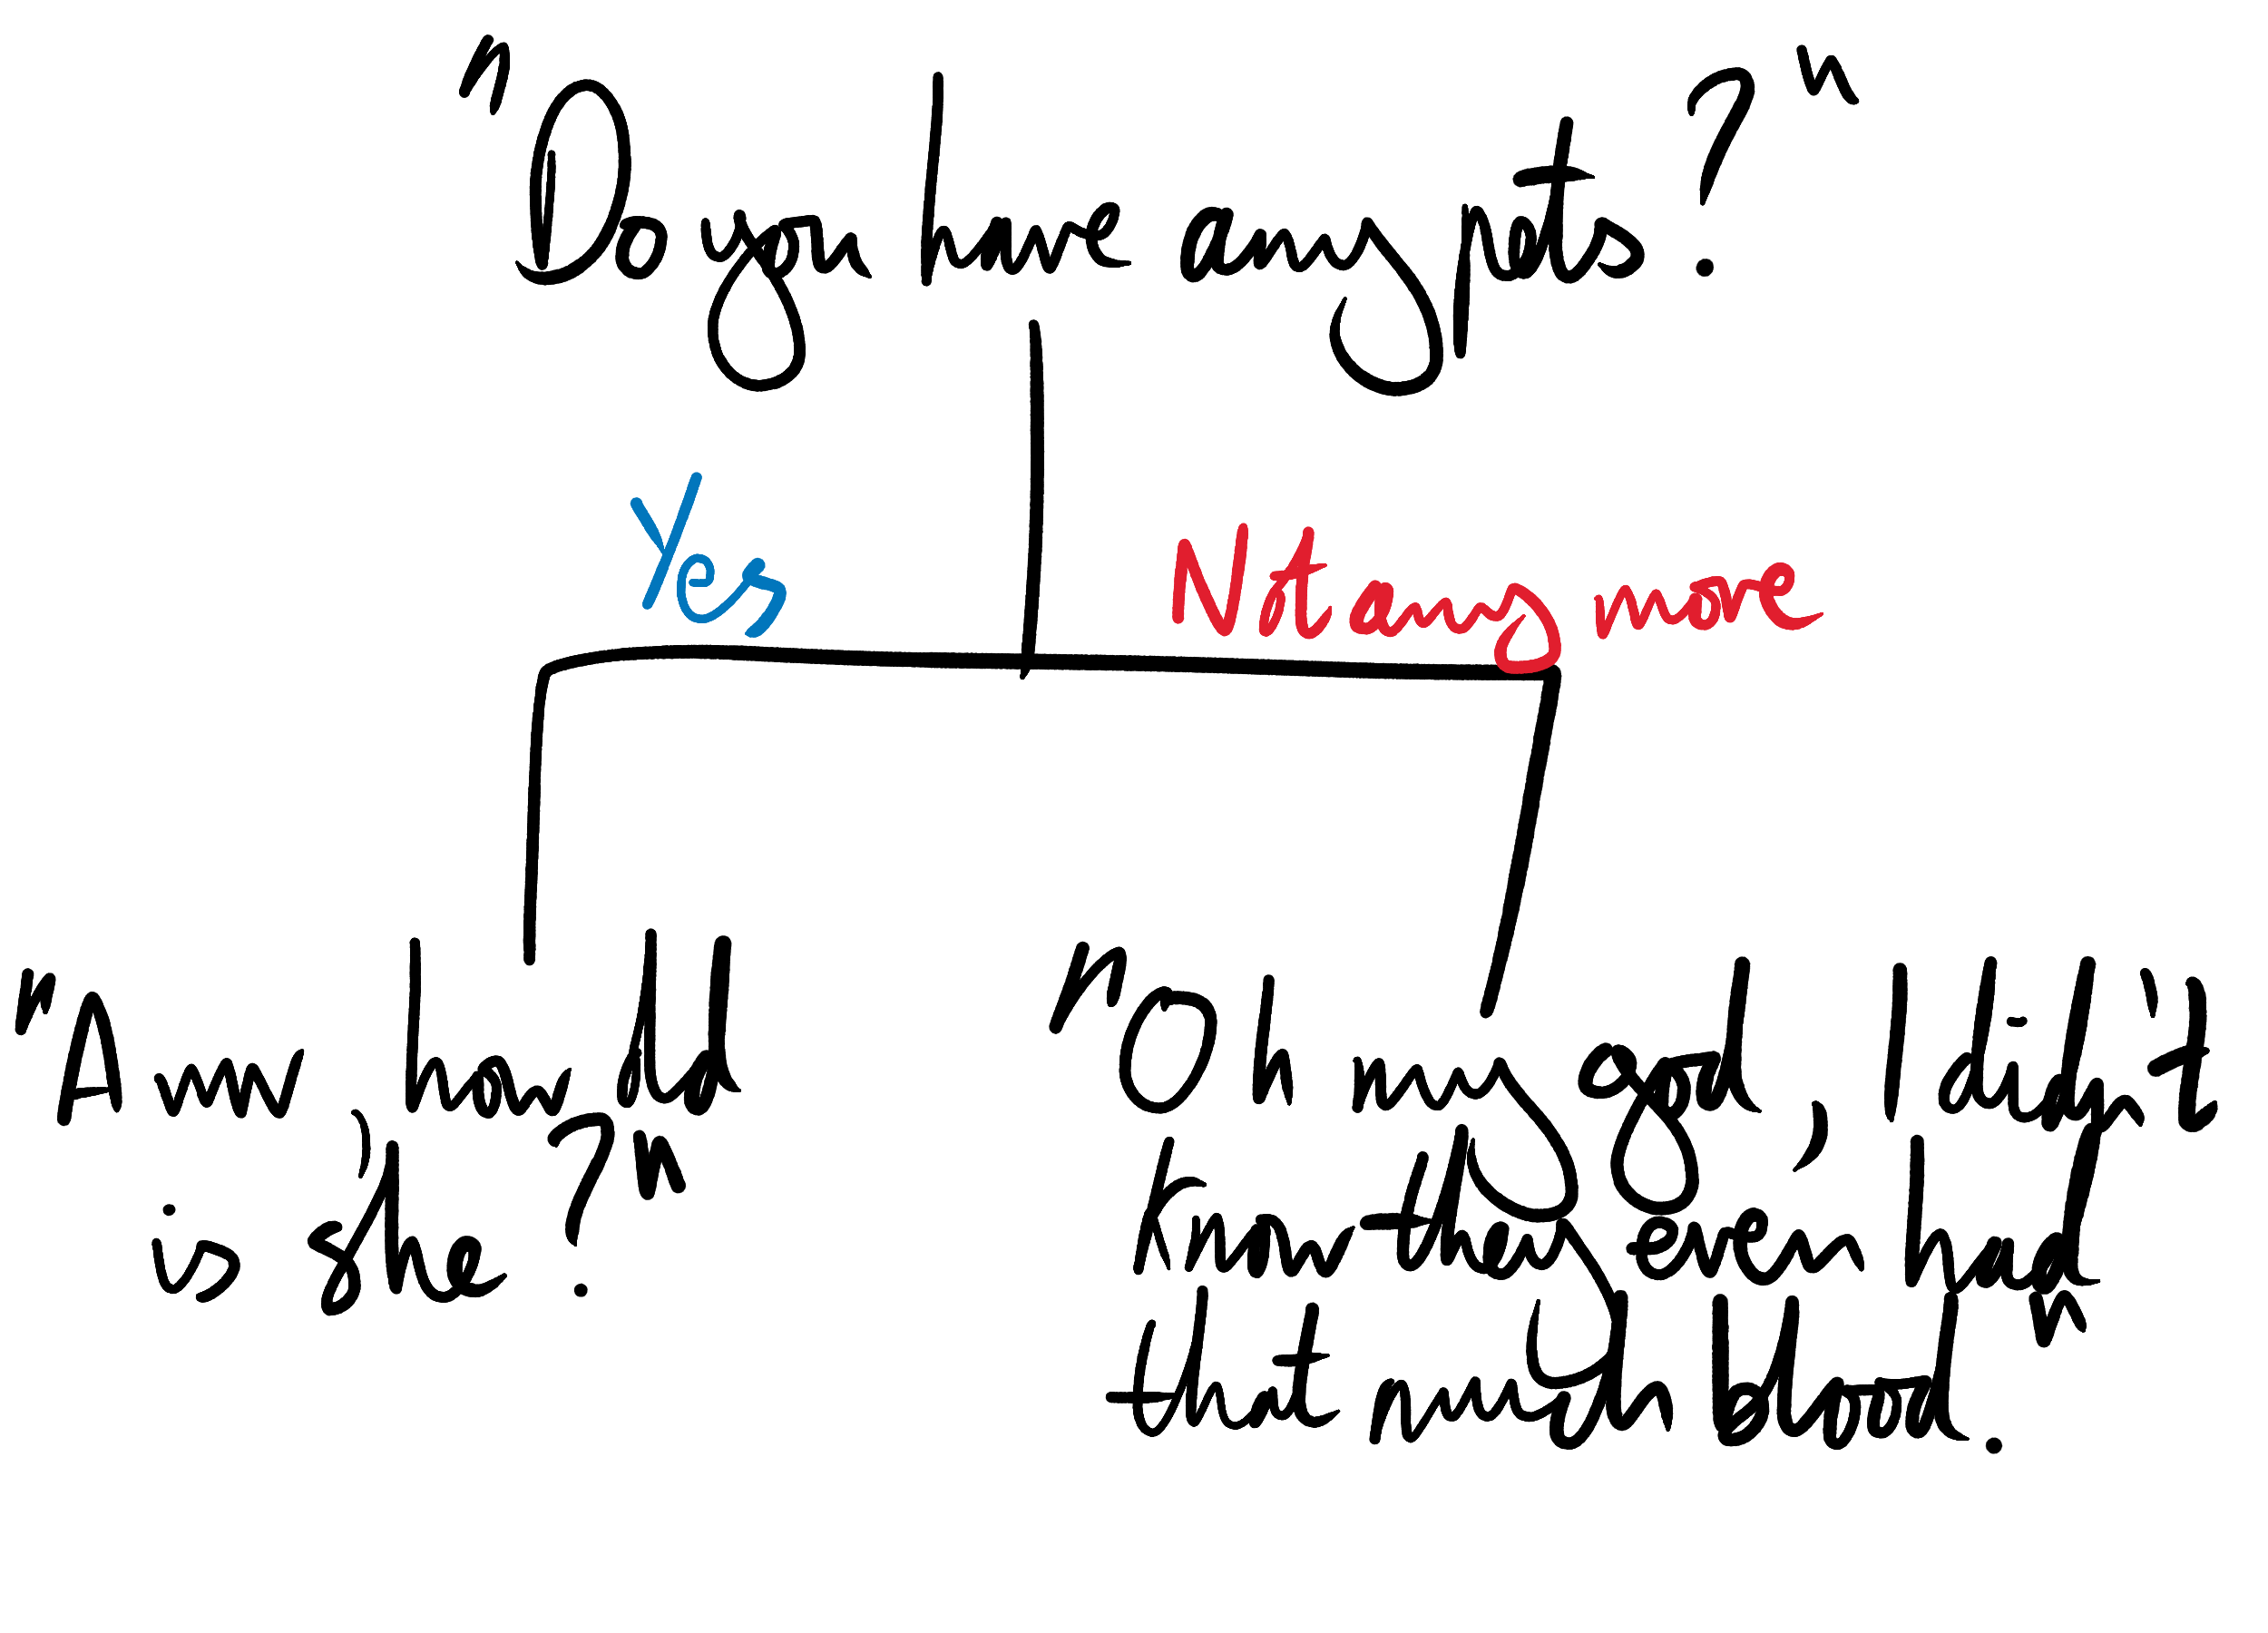 "Do you have any pets?"
Yes
Not anymore
"Aww, how old
is she?"
"Oh my god, I didn't
know they even had
that much blood."